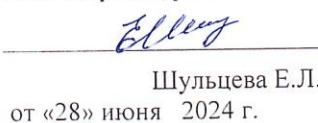 Шульцева Е.Л.
от «28» июня 2024 г.